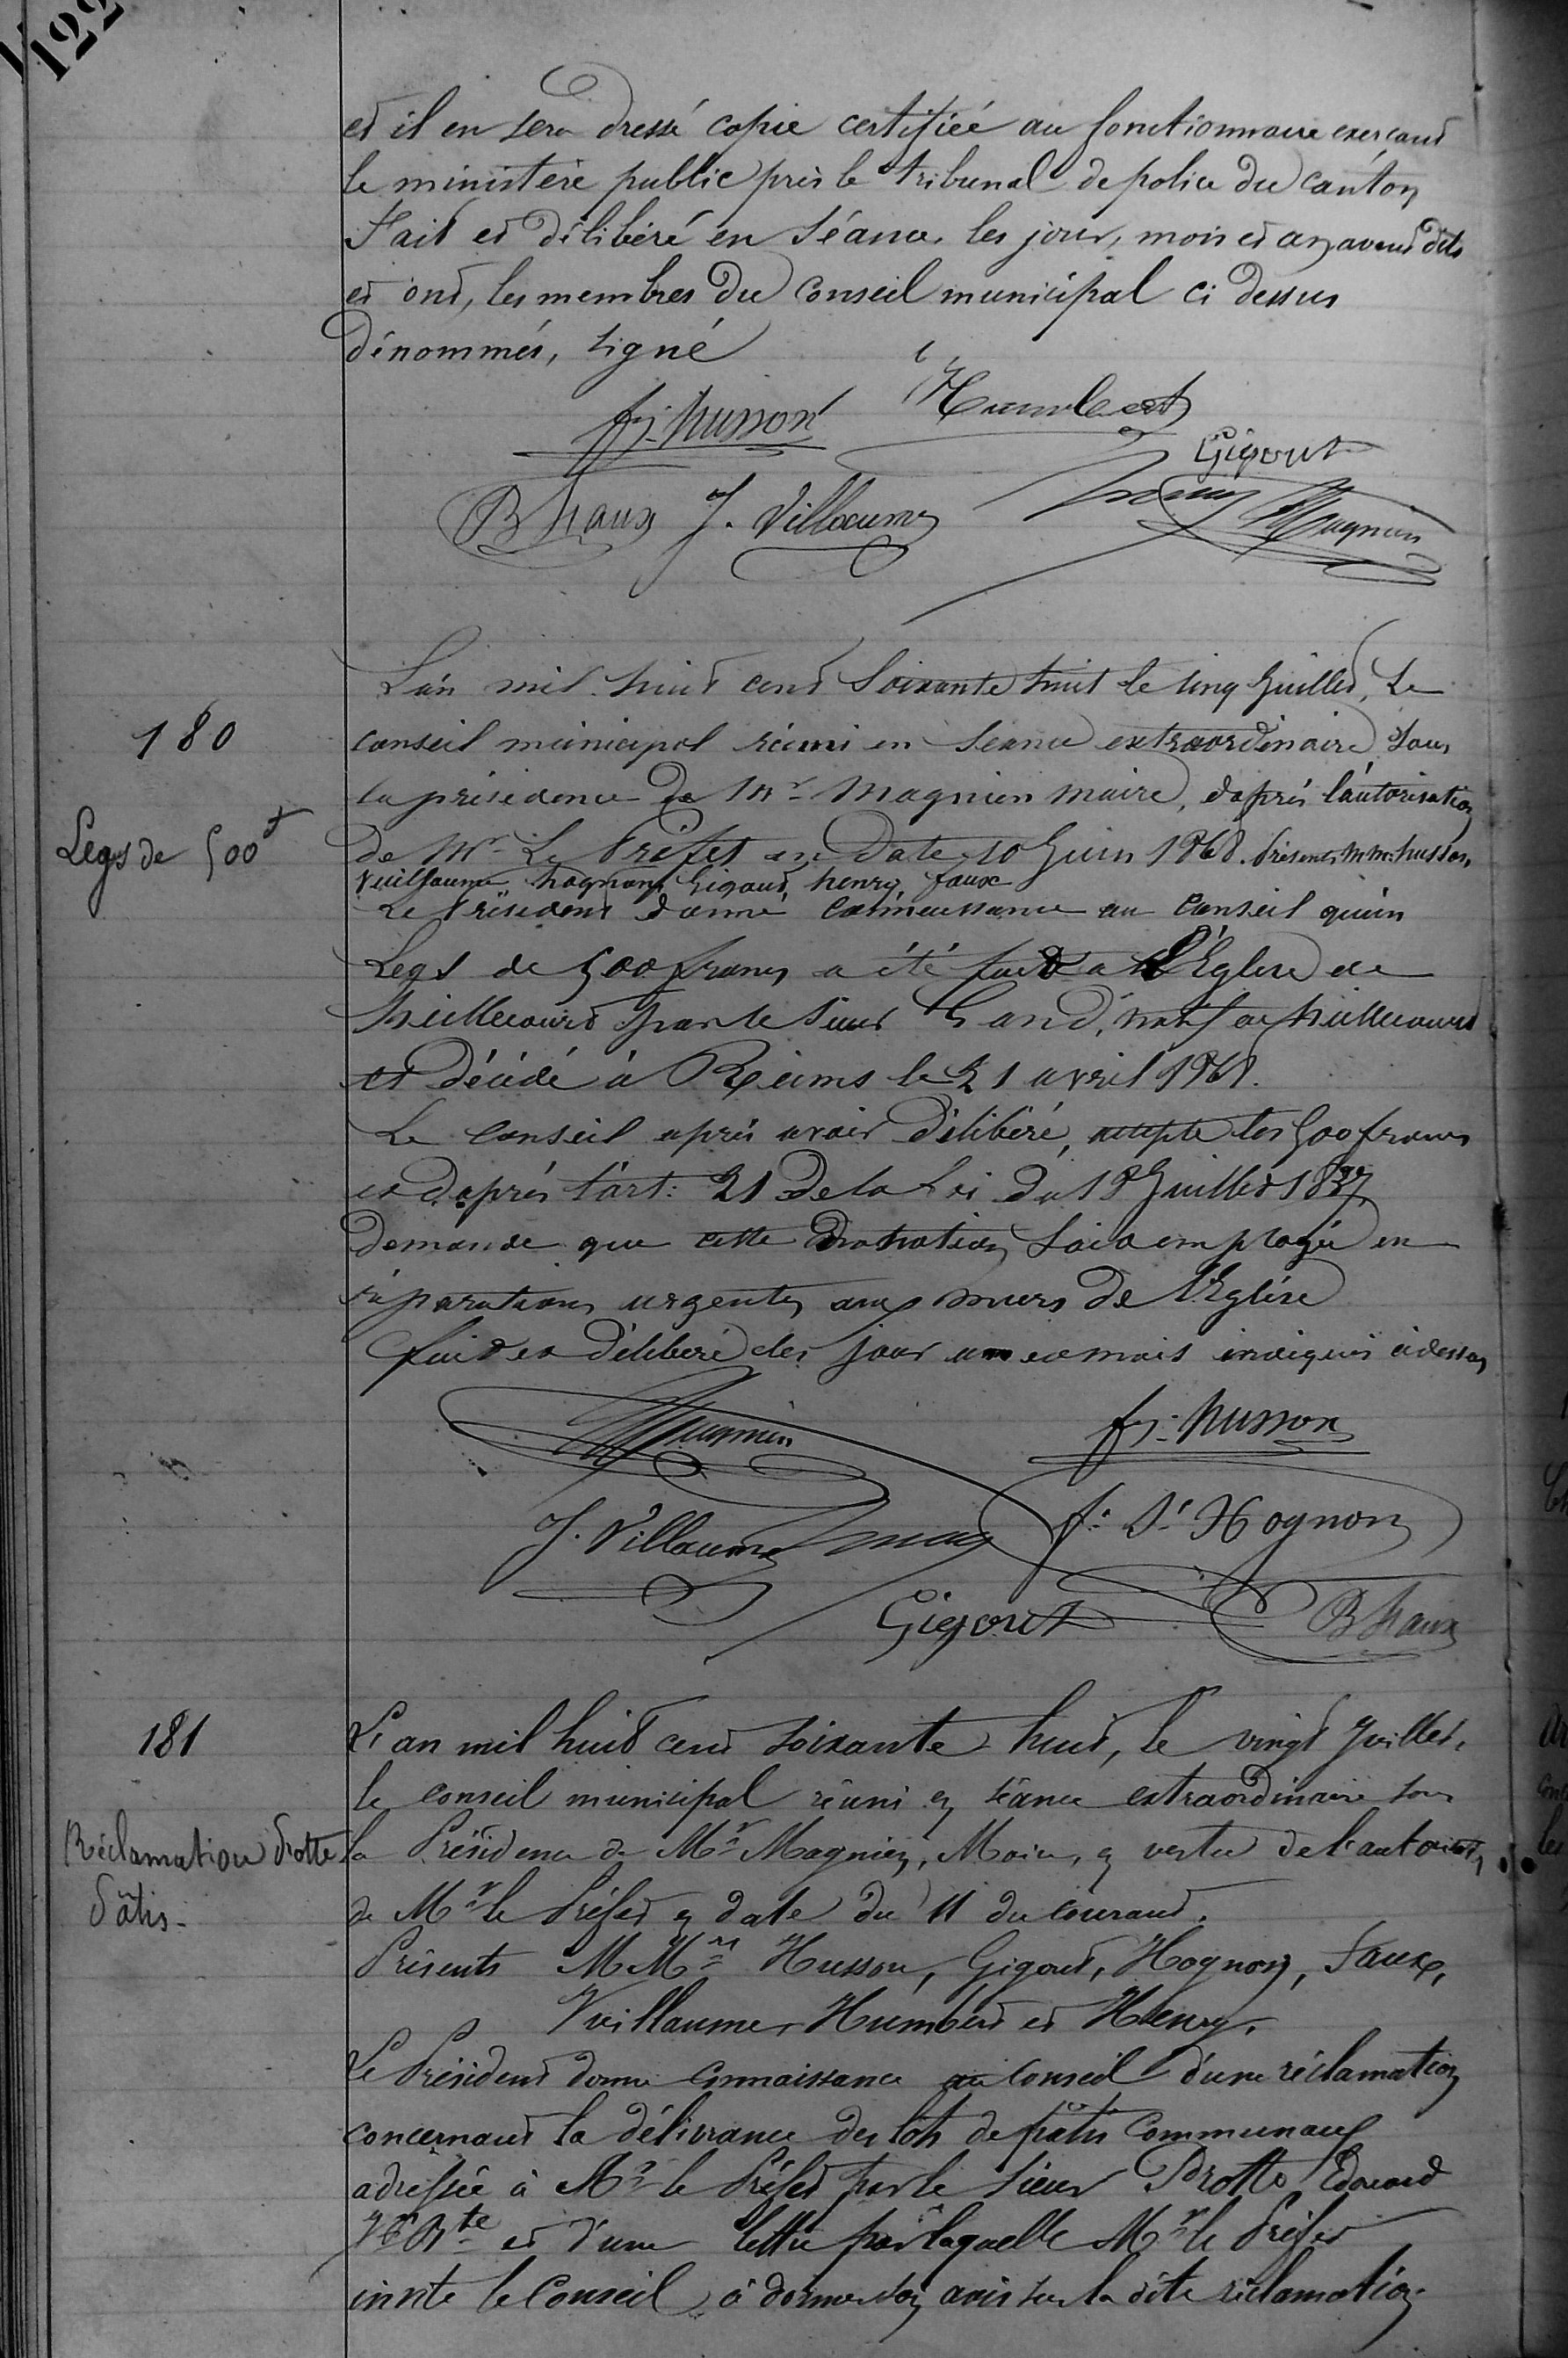 122
et il en sera dressé copie certifiée au fonctionnaire exerçant
le ministère public près le tribunal de police du canton
Fait et délibéré en Séance, les jour, mois et an avant dits
et ont, les membres du Conseil municipal ci dessus
dénommés, signé
fs. husson
Humbert
Gigout
B faux J. Villaume
Henry Magnien
L'an mil huit cent Soixante huit le cinq Juillet, Le
180
conseil municipal réuni en Séance extraordinaire, Sous
la présidence de Mr Magnien maire, d'après l'autorisation
Legs de 500f
de Mr Le Préfet en Date 10 Juin 1868. présents MM. husson,
Vuillaume, hognon, Gigout, henry, faux
Le Président donne connaissance au Conseil qu'un
Legs de 500 francs a été fait a L'Église de
huillecourt par le Sieur natif de huillecourt
et Décédé à Reims le 21 avril 1868.
Le Conseil après avoir Délibéré, accepte les 500 francs
et d'après l'art: 21 De la Loi du 18 Juillet 1837
Demande que cette Donation soit employée en
réparations urgentes aux murs de l'Eglise
fait et Délibéré les jour an et mois indiqués ci dessus
Magnien
fs. husson
J. Villaume Henry f. St Hognon
Gigout B faux
181
L'an mil huit cent soixante huit, le vingt Juillet,
le conseil municipal réuni en séance extraordinaire sous
Réclamation Drotte
la Présidence de Mr Magnien, Maire, en vertu de l'autorisation
Pâtis.
de Mr le Préfet en date du 11 du courant.
Présents MMrs Husson, Gigout, Hognon, Faux,
Vuillaume, Humbert et Henry.
Le Président donne Connaissance au Conseil d'une réclamation
concernant la délivrance des lots de pâtis Communaux
adressée à Mr le Préfet par le Sieur Drotte Edouard
et d'une lettre par laquelle Mr le Préfet
invite le Conseil à donner son avis sur la dite réclamation